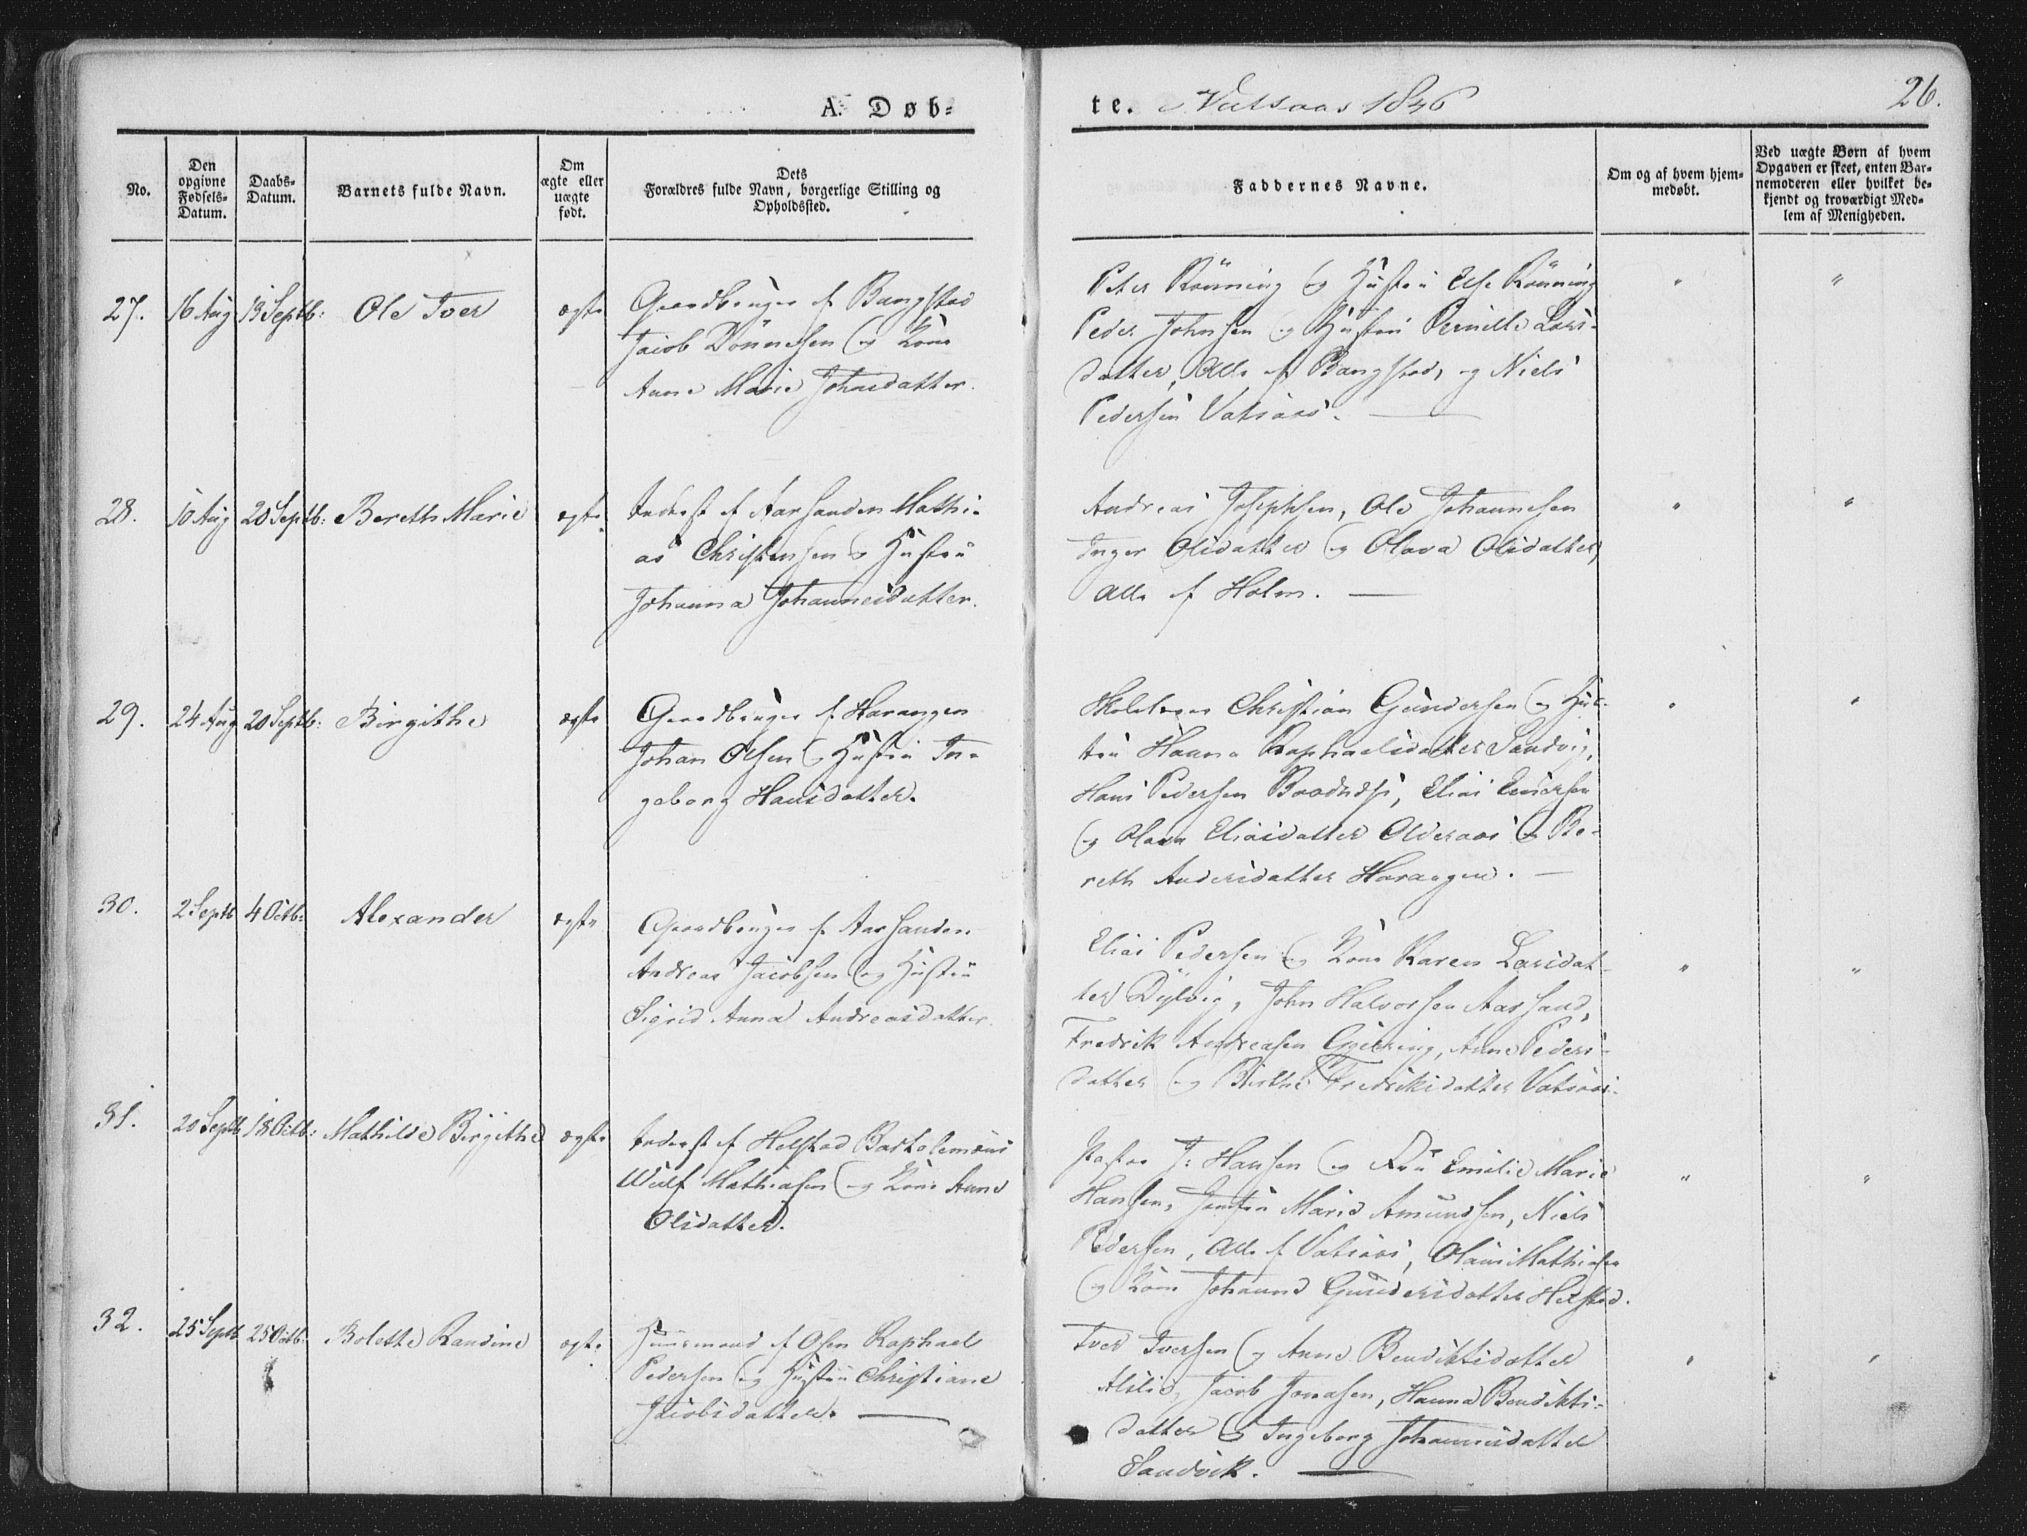 A. Døb=
te. Vatsaas 1846
26.
No.
Den opgivne Fødsels-Datum.
Daabs-Datum.
Barnets fulde Navn.
Om ægte eller uægte født.
Dets Forældres fulde Navn, borgerlige Stilling og Opholdssted.
Faddernes Navne.
Om og af hvem hjemmedøbt.
Ved uægte Børn af hvem Opgaven er skeet, enten Barnemoderen eller hvilket bekjendt og troværdigt Medlem af Menigheden.
27. 16 Aug 13 Septb: Ole Iver ægte
Gaardbruger af Bangstad
Jacob Dönnesen og Kone
Anne Marie Johnsdatter.
Peter Rönning og Hustru Else Rönning
Peder Johnsen og Hustru Pernille Lars-
datter, Alle af Bangstad, og Niels
Pedersen Vatsaas.
28. 10 Aug 20 Septb: Bereth Marie ægte
Inderst af Aarsanden Mathi-
as Christensen og Hustru
Johanna Johannesdatter.
Andreas Josephsen, Ole Johannesen
Inger Olsdatter og Olava Olsdatter,
Alle af Holm.
29. 24 Aug 20 Septb: Birgithe ægte
Gaardbruger af Harangen
Johan Olsen og Hustru In-
geborg Hansdatter.
Christian Gundersen og Hus-
tru Hanna Raphaelsdatter Sandvig,
Hans Pedersen, Elias
og Olava Eliasdatter Olderaas og Be-
reth Andersdatter Harangen.
30. 2 Septb 4 Octb: Alexander ægte
Gaardbruger af Aarsanden
Andreas Jacobsen og Hustru
Sigrid Anna Andreasdatter.
Elias Pedersen og Kone Karen Larsdat-
ter Dylvig, John Halvorsen Aarsand,
Fredrik Andreasen, Anne Peders-
datter og Birthe Fredriksdatter Vatsaas.
31. 20 Septb 18 Octb: Mathilde Birgithe ægte
Inderst af Helstad Bartolemæus
Wulf Mathiasen og Kone Anne
Olsdatter.
Pastor J: Hansen og Fru Emilie Marie
Hansen, Jomfru Marie Amundsen, Niels
Pedersen, Alle af Vatsaas, Olaus Mathiasen
og Kone Johanna Gundersdatter Helstad.
32. 25 Septb 25 Octb: Bolette Randine ægte
Huusmand af Osen Raphael
Pedersen og Hustru Christiane
Jacobsdatter.
Iver Iversen og Anne Bendiktsdatter
Alslie, Jacob Jonasen, Hanna Bendikts-
datter og Ingeborg Johannesdatter
Sandvik.